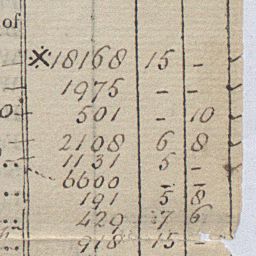 of
※18168 15 –
1975 – –
501 – 10
2108 6 8
1131 5 –
6600 – –
191 5 8
429 7 6
918 15 –